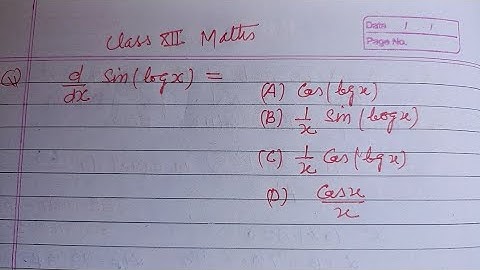 Class XII Maths
Date / /
Page No.
Q) d/dx Sin(logx) =
(A) Cos(logx)
(B) 1/x Sin(logx)
(C) 1/x Cos(logx)
(D) Cosx/x